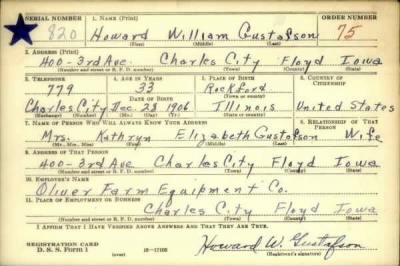 SERIAL NUMBER 1. NAME (Print) ORDER NUMBER
820 Howard William Gustafson 75
(First) (Middle) (Last)
2. ADDRESS (Print)
400-3rd Ave Charles City Floyd Iowa
(Number and street or R. F. D. number) (Town) (County) (State)
3. TELEPHONE 4. AGE IN YEARS 5. PLACE OF BIRTH 6. COUNTRY OF CITIZENSHIP
779 33 Rockford
DATE OF BIRTH (Town or county)
Charles City Dec. 28 1906 Illinois United States
(Exchange) (Number) (Mo.) (Day) (Yr.) (State or country)
7. NAME OF PERSON WHO WILL ALWAYS KNOW YOUR ADDRESS 8. RELATIONSHIP OF THAT PERSON
Mrs. Kathryn Elizabeth Gustafson Wife
(Mr., Mrs., Miss) (First) (Middle) (Last)
9. ADDRESS OF THAT PERSON
400-3rd Ave Charles City Floyd Iowa
(Number and street or R. F. D. number) (Town) (County) (State)
10. EMPLOYER'S NAME
Oliver Farm Equipment Co.
11. PLACE OF EMPLOYMENT OR BUSINESS
Charles City Floyd Iowa
(Number and street or R. F. D. number) (Town) (County) (State)
I AFFIRM THAT I HAVE VERIFIED ABOVE ANSWERS AND THAT THEY ARE TRUE.
REGISTRATION CARD
D. S. S. Form 1 16-17105 Howard W. Gustafson
(over) (Registrant's signature)